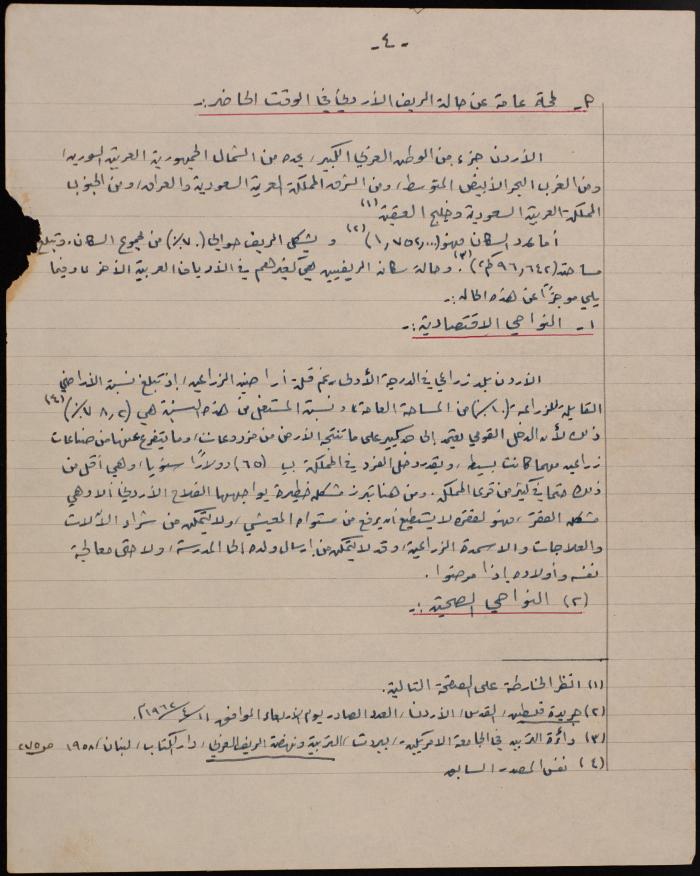 -٤-
٣- لمحة عامة عن حالة الريف الأردني في الوقت الحاضر:-
الأردن جزء من الوطن العربي الكبير، يحده من الشمال الجمهورية العربية السورية،
ومن الغرب البحر الأبيض المتوسط، ومن الشرق المملكة العربية السعودية والعراق، ومن الجنوب
المملكة العربية السعودية وخليج العقبة (١)
أما عدد السكان فهو (١,٧٥٢,٠٠٠) (٢) و يشكل الريف حوالي (٧٠٪) من مجموع السكان. وتبلغ
مساحته (٩٦,٦٤٢ كم٢) (٣). وحالة سكان الريفيين هي كغيرهم في الأرياف العربية الأخرى وفيما
يلي موجزًا عن هذه الحالة:-
١- النواحي الاقتصادية:-
الأردن بلد زراعي في الدرجة الأولى رغم قلة أراضيه الزراعية، إذ تبلغ نسبة الأراضي
القابلة للزراعة (١٠٪) من المساحة العامة، ونسبة المستغل من هذه النسبة هي (٧٨,٢٪) (٤)
ذلك لأن الدخل القومي يعتمد إلى حد كبير على ما تنتج الأرض من مزروعات، وما يتفرع عنها من صناعات
زراعية مهما كانت بسيطة، ويقدر دخل الفرد في المملكة بـ (٦٥) دولارًا سنويا، وهي أقل من
ذلك حتما في كثير من قرى المملكة. ومن هنا تبرز مشكلة خطيرة يواجهها الفلاح الأردني ألا وهي
مشكلة الفقر، فهو لفقره لا يستطيع أن يرفع من مستواه المعيشي، ولا يتمكن من شراء الآلات
والعلاجات والاسمدة الزراعية، وقد لا يتمكن من إرسال ولده الى المدرسة، ولا حتى معالجة
نفسه وأولاده إذا مرضوا.
(٢) النواحي الصحية:-
(١) انظر الخارطة على الصفحة التالية.
(٢) جريدة فلسطين، القدس، الأردن، العدد الصادر يوم الأربعاء الموافق ١١/٤/١٩٦٢م.
(٣) دائرة التربية في الجامعة الامريكية، بيروت، التربية ونهضة الريف العربي، دار الكتاب، لبنان، ١٩٥٨ ص ٢٧٥
(٤) نفس المصدر السابق